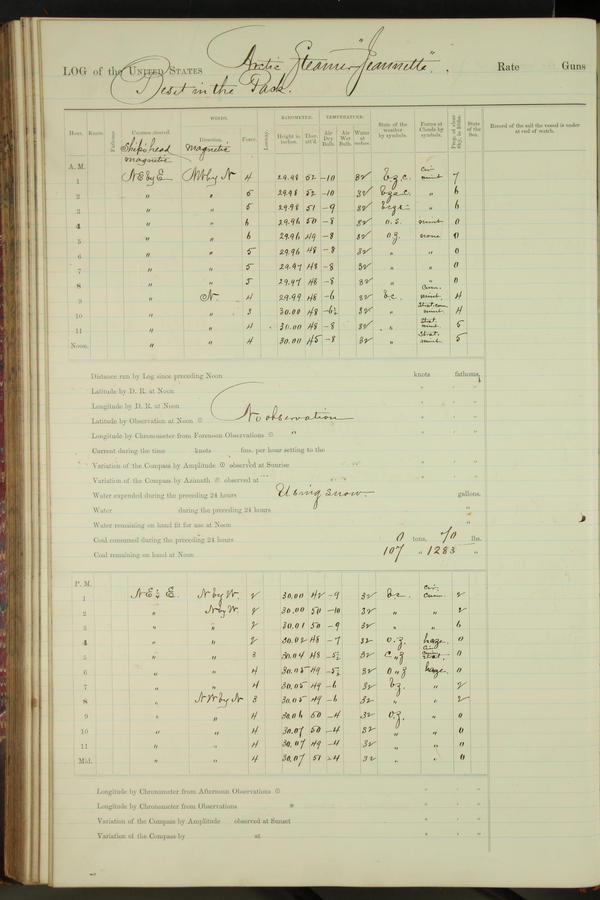 LOG of the UNITED STATES Arctic Steamer "Jeannette". Rate Guns
Beset in the Pack.
WINDS. BAROMETER. TEMPERATURE.
Hour. Knots. Fathoms. Courses steered. Direction. Force. Leeway. Height in inches. Ther. att'd. Air Dry Bulb. Air Wet Bulb. Water at surface. State of the weather by symbols. Forms of Clouds by symbols. Prop. of clear sky, in 10ths. State of the Sea. Record of the sail the vessel is under at end of watch.
Ship's head magnetic
magnetic
A. M.
1 NE by E NW by N 4 29.98 52 -10 32 b.z.c. cir. mist 7
2 " " 5 29.98 52 -10 32 " 6
3 " " 5 29.98 51 -9 32 " 6
4 " " 6 29.96 50 -8 32 o.s. mist 0
5 " " 6 29.96 49 -8 32 o.z. none 0
6 " " 5 29.96 48 -8 32 " " 0
7 " " 5 29.97 48 -8 32 " " 0
8 " " 5 29.97 48 -8 32 " " 0
9 " N. 4 29.99 48 -6 32 b.c. Cum. mist. 4
10 " " 3 30.00 48 -6½ 32 " Strat. cum. mist. 4
11 " " 4 30.00 48 -8 32 " Strat. mist. 5
Noon. " " 4 30.00 45 -8 32 " Strat. mist. 5
Distance run by Log since preceding Noon knots fathoms,
Latitude by D. R. at Noon " " "
Longitude by D. R. at Noon " " "
Latitude by Observation at Noon ☉ No observation " " "
Longitude by Chronometer from Forenoon Observations ☉ " " " "
Current during the time knots fms. per hour setting to the
Variation of the Compass by Amplitude ☉ observed at Sunrise " " "
Variation of the Compass by Azimuth ☉ observed at " " "
Water expended during the preceding 24 hours Using snow. gallons.
Water during the preceding 24 hours "
Water remaining on hand fit for use at Noon "
Coal consumed during the preceding 24 hours 0 tons, 70 lbs.
Coal remaining on hand at Noon 107 " 1283 "
P. M.
1 NE ½ E. N by W. 2 30.00 42 -9 32 b.c. cir. cum. 2
2 " N by W. 2 30.00 50 -10 32 " " 2
3 " " 2 30.01 50 -9 32 " " 6
4 " " 2 30.02 48 -7 32 o.z. haze. 0
5 " " 3 30.04 48 -5½ 32 strat. 0
6 " " 4 30.05 49 -5½ 32 o " z haze. 0
7 " " 4 30.05 49 -6 32 b.z. " 2
8 " NW by N 3 30.05 49 -6 32 " " 2
9 " " 4 30.06 50 -4 32 o.z. " 0
10 " " 4 30.07 50 -4 32 " " 0
11 " " 4 30.07 49 -4 32 " " 0
Mid. " " 4 30.07 51 -4 32 " " 0
Longitude by Chronometer from Afternoon Observations ☉ " " "
Longitude by Chronometer from Observations * " " "
Variation of the Compass by Amplitude observed at Sunset " " "
Variation of the Compass by at " " "